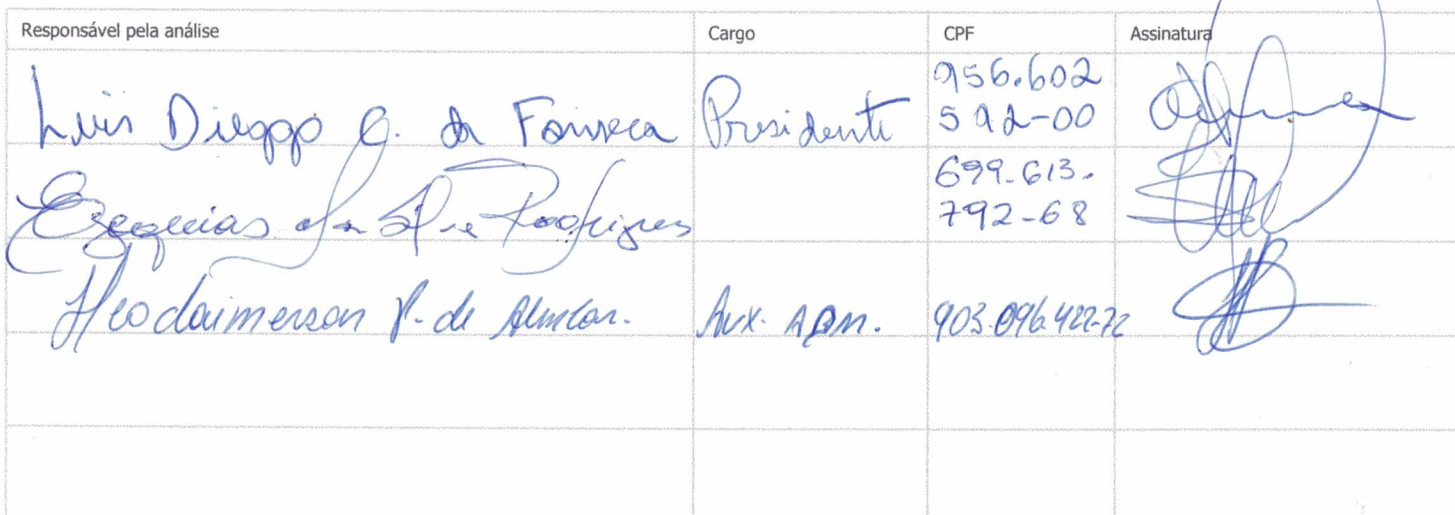 Responsável pela análise Cargo CPF Assinatura
Luis Dieggo C. da Fonseca Presidente 956.602 592-00
Ezequias da Rodrigues 699.613. 792-68
P. de Alencar. Aux. ADM. 903.096.422-72